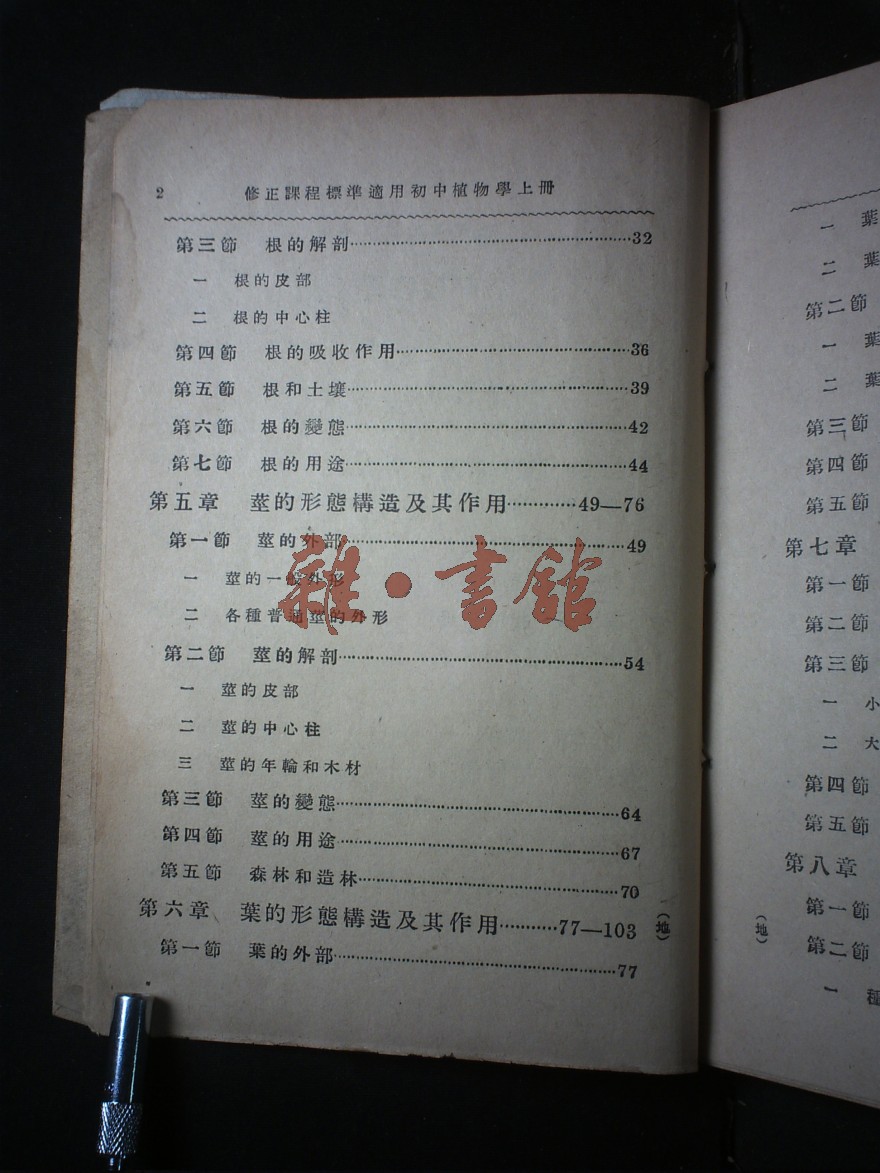 2 修正課程標準適用初中植物學上册
第三節 根的解剖……32
一 根的皮部
二 根的中心柱
第四節 根的吸收作用……36
第五節 根和土壤……39
第六節 根的變態……42
第七節 根的用途……44
第五章 莖的形態構造及其作用……49—76
第一節 莖的外部……49
一 莖的一般外形
二 各種普通莖的外形
第二節 莖的解剖……54
一 莖的皮部
二 莖的中心柱
三 莖的年輪和木材
第三節 莖的變態……64
第四節 莖的用途……67
第五節 森林和造林……70
第六章 葉的形態構造及其作用……77—103
第一節 葉的外部……77
(地)
雜·書館
一 葉
二 葉
第二節
一 葉
二 葉
第三節
第四節
第五節
第七章
第一節
第二節
第三節
一 小
二 大
第四節
第五節
第八章
第一節
第二節
一 種
(地)